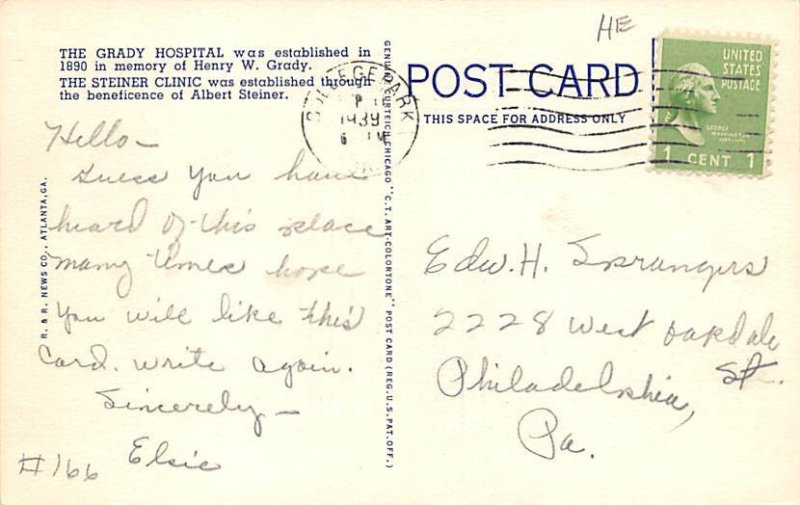 HE
THE GRADY HOSPITAL was established in
1890 in memory of Henry W. Grady.
THE STEINER CLINIC was established through
the beneficence of Albert Steiner.
Hello—
Guess you have
heard of this place
many times hope
you will like this
Card. write again.
Sincerely—
Elsie
#166
R. & R. NEWS CO., ATLANTA, GA.
GENUINE CURTEICH-CHICAGO "C.T. ART-COLORTONE" POST CARD (REG. U.S. PAT. OFF.)
COLLEGE PARK
1939
POST CARD
THIS SPACE FOR ADDRESS ONLY
UNITED
STATES
POSTAGE
GEORGE
WASHINGTON
1 CENT 1
Edw. H. Sprangers
2228 West Oakdale
St.
Philadelphia,
Pa.